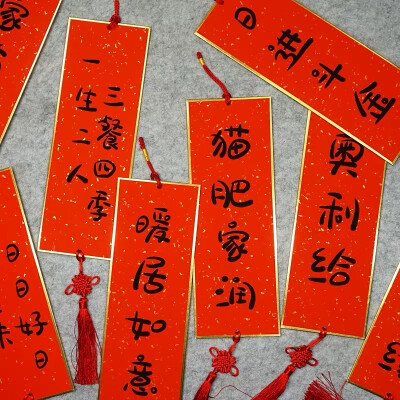 家
一生二人
三餐四季
日进斗金
猫肥家润
奥利给
暖居如意
日日
好日